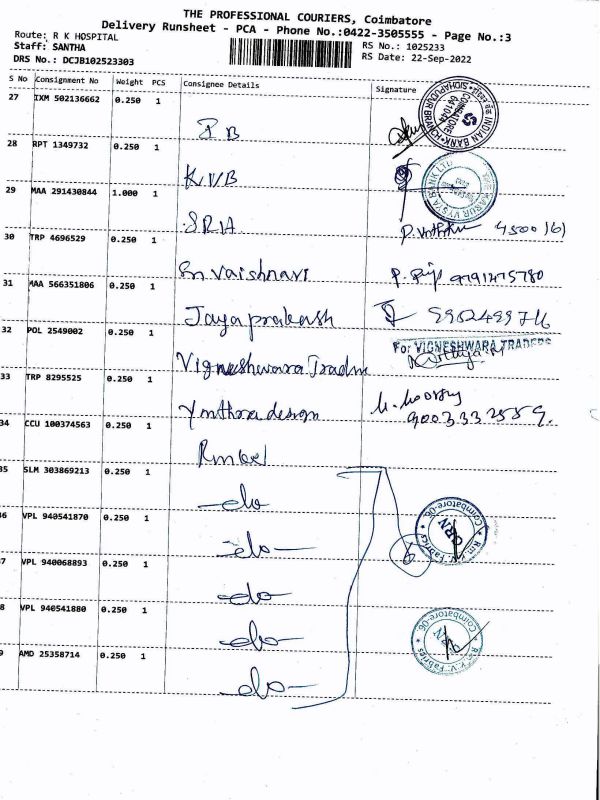 THE PROFESSIONAL COURIERS, Coimbatore
Delivery Runsheet - PCA - Phone No.:0422-3505555 - Page No.:3
Route: R K HOSPITAL
Staff: SANTHA
RS No.: 1025233
DRS No.: DCJB102523303
RS Date: 22-Sep-2022
S No Consignment No Weight PCS Consignee Details Signature
27 IXM 502136662 0.250 1
28 RPT 1349732 0.250 1
KVB
29 MAA 291430844 1.000 1
SRIA
30 TRP 4696529 0.250 1
Sri Vaishnavi
31 MAA 566351806 0.250 1
Jayaprakash
32 POL 2549002 0.250 1
For VIGNESHWARA TRADERS
Vigneshwara
33 TRP 8295525 0.250 1
design
34 CCU 100374563 0.250 1
35 SLM 303869213 0.250 1
-do-
36 VPL 940541870 0.250 1
-do-
37 VPL 940068893 0.250 1
-do-
38 VPL 940541880 0.250 1
-do-
39 AMD 25358714 0.250 1
-do-
6
Rm.K.V. Fabrics
Coimbatore-06.
Rm.K.V. Fabrics
Coimbatore-06.